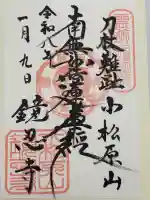 刀杖難趾
小松原山
南無妙法蓮華経
令和八年
一月九日
鏡忍寺